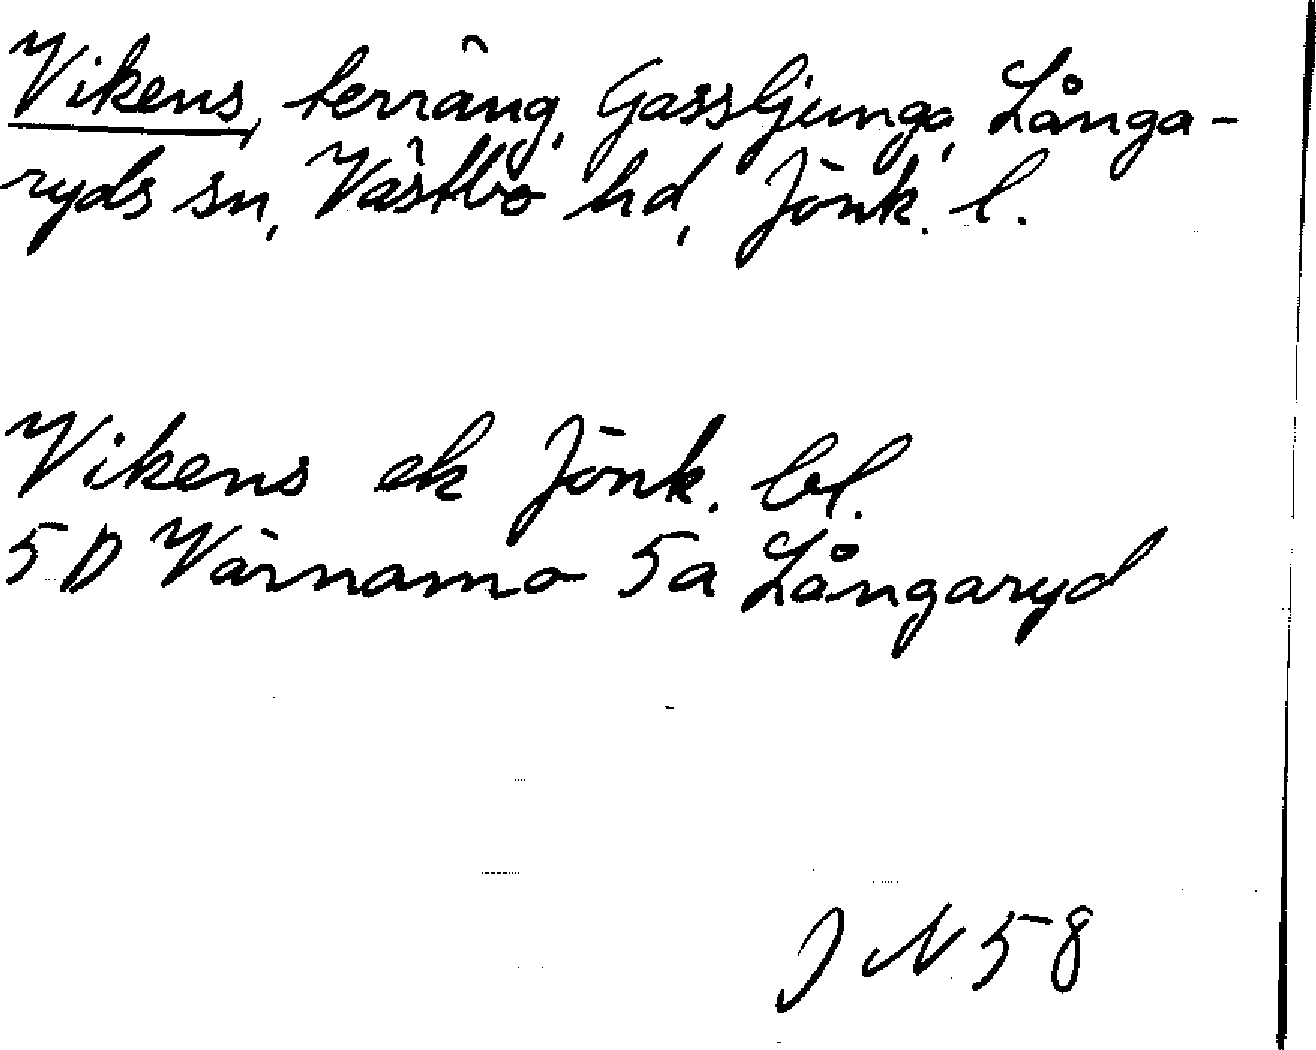 Vikens, terräng, Gassljunga, Långa-
ryds sn, Västbo hd, Jönk. l.
Vikens ek Jönk. bl.
5 D Värnamo 5a Långaryd
J N 58